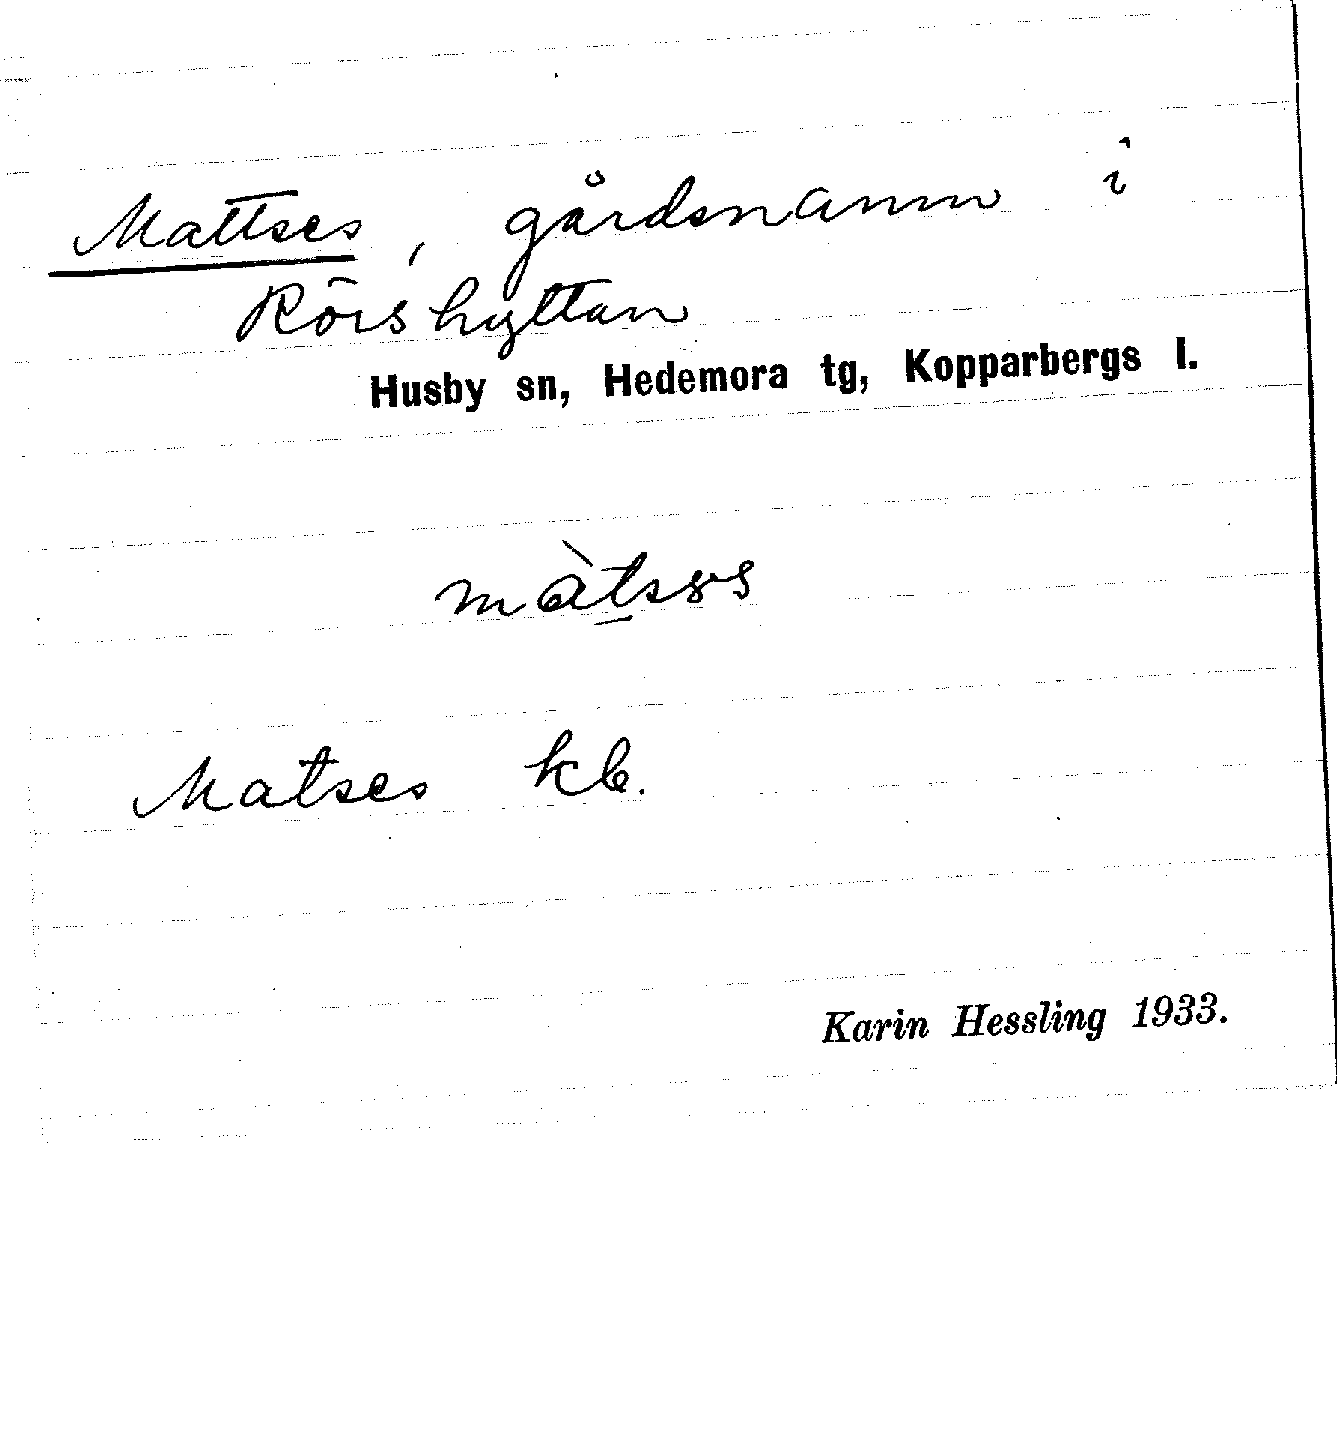 Mattses, gårdsnamn i
Rörshyttan
Husby sn, Hedemora tg, Kopparbergs l.
Matses kb.
Karin Hessling 1933.